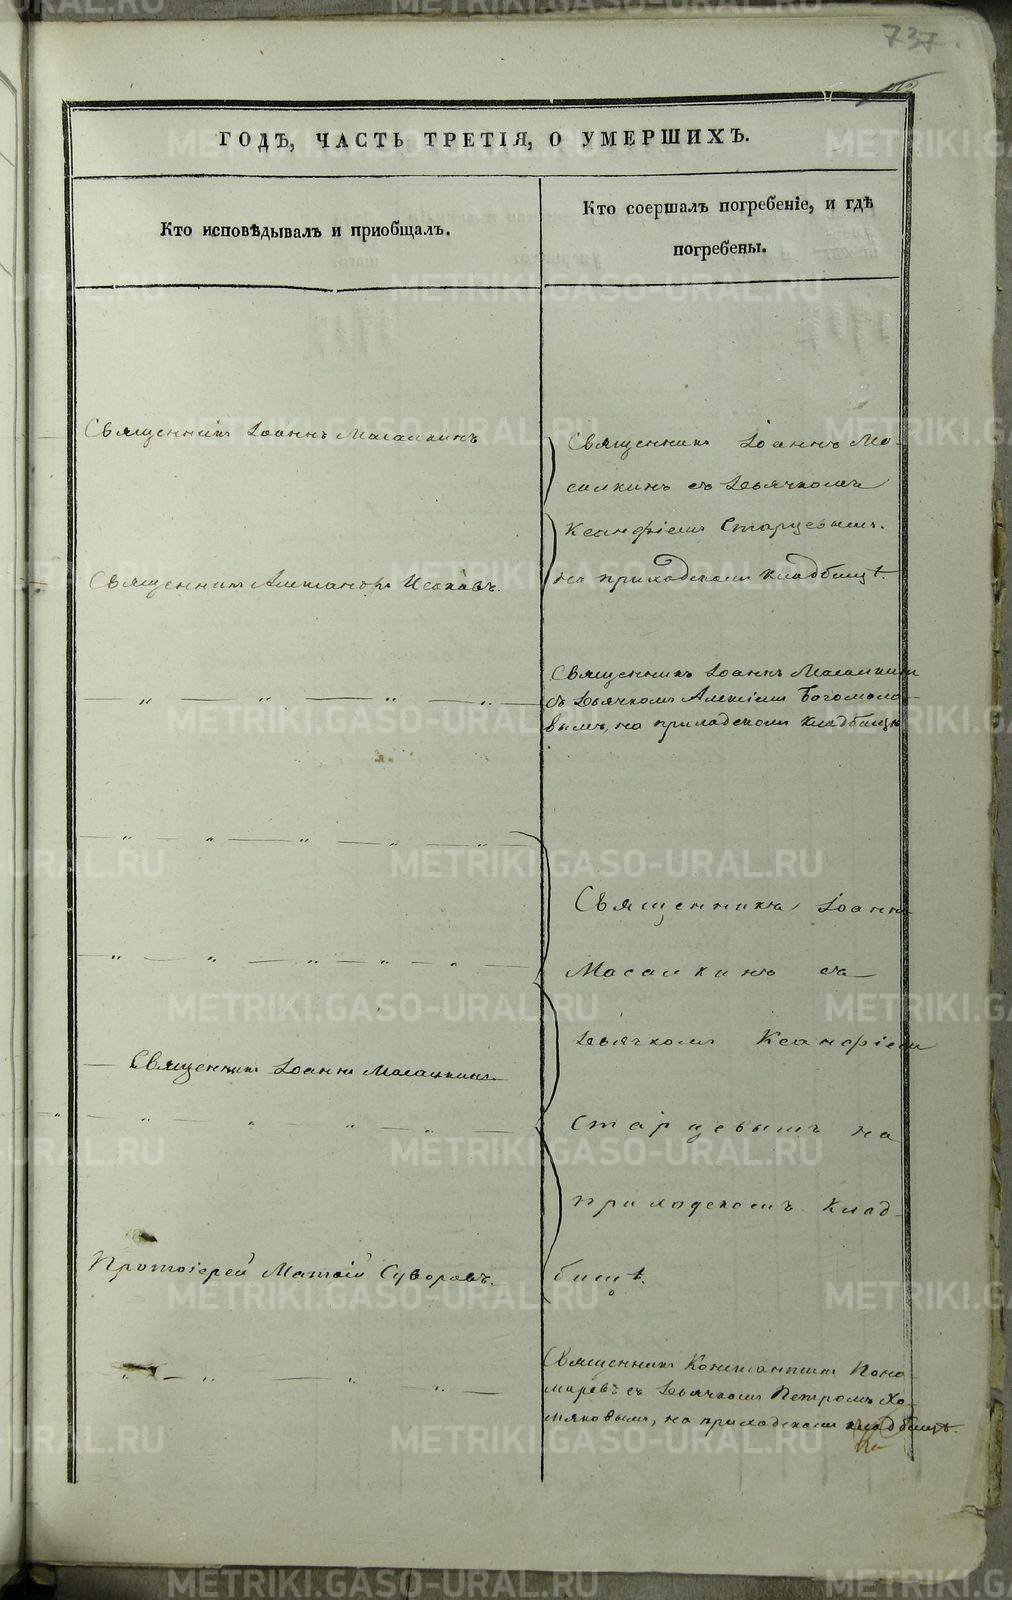 737.
ГОДЪ, ЧАСТЬ ТРЕТІЯ, О УМЕРШИХЪ.
Кто исповѣдывалъ и приобщалъ.
Кто соершалъ погребеніе, и гдѣ
погребены.
Священникъ Іоаннъ Масалкинъ
Священникъ Іоаннъ Ма-
салкинъ съ дьячкомъ
Ксанфіемъ Старцевымъ.
на приходскомъ кладбищѣ.
Священникъ Александръ Исаковъ.
Священникъ Іоаннъ Масалкинъ
съ дьячкомъ Алексіемъ Богомоло-
вымъ, на приходскомъ кладбищѣ
— „ — „ — „ — „ —
— „ — „ — „ — „ — „ —
— „ — „ — „ — „ — „ —
Священникъ Іоаннъ
Масалкинъ съ
дьячкомъ Ксанфіемъ
Старцевымъ на
приходскомъ клад-
бищѣ.
— Священникъ Іоаннъ Масалкинъ.
„ — „ — „ — „ — „ —
Протоіерей Матѳій Суворовъ.
„ — „ — „ — „ —
Священникъ Константинъ Поно-
маревъ съ дьячкомъ Петромъ Хо-
мяковымъ, на приходскомъ кладбищѣ.
METRIKI.GASO-URAL.RU